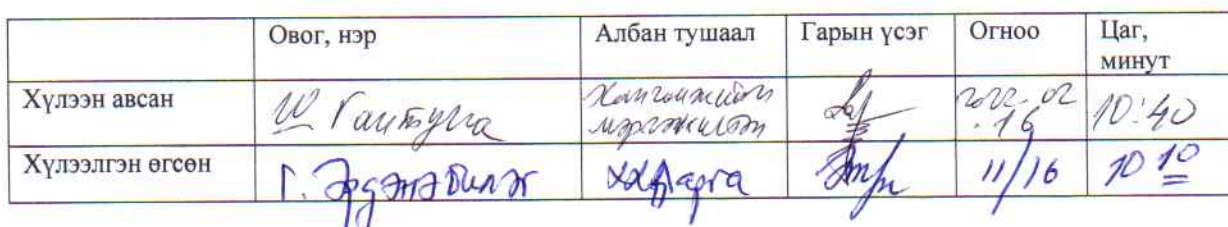 Овог, нэр Албан тушаал Гарын үсэг Огноо Цаг, минут
Хүлээн авсан Ш Гантулга Хангамжийн мэргэжилтэн 10:40
Хүлээлгэн өгсөн Г. Эрдэнэбилэг дарга 11/16 10 10